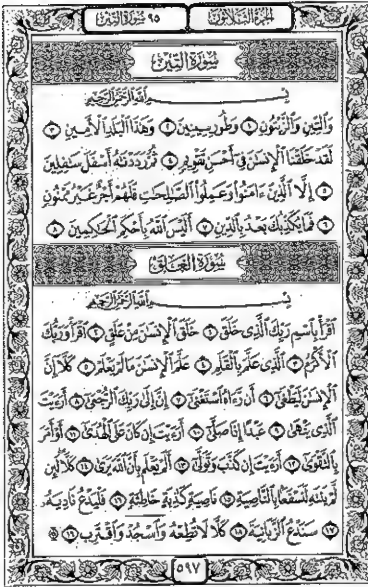 الجزء الثلاثون ٩٥ سورة التين
سُورَةُ التِّينِ
بِسْمِ اللَّهِ الرَّحْمَٰنِ الرَّحِيمِ
وَٱلتِّينِ وَٱلزَّيْتُونِ ١ وَطُورِ سِينِينَ ٢ وَهَٰذَا ٱلْبَلَدِ ٱلْأَمِينِ ٣
لَقَدْ خَلَقْنَا ٱلْإِنسَٰنَ فِىٓ أَحْسَنِ تَقْوِيمٍ ٤ ثُمَّ رَدَدْنَٰهُ أَسْفَلَ سَٰفِلِينَ
٥ إِلَّا ٱلَّذِينَ ءَامَنُوا۟ وَعَمِلُوا۟ ٱلصَّٰلِحَٰتِ فَلَهُمْ أَجْرٌ غَيْرُ مَمْنُونٍ
٦ فَمَا يُكَذِّبُكَ بَعْدُ بِٱلدِّينِ ٧ أَلَيْسَ ٱللَّهُ بِأَحْكَمِ ٱلْحَٰكِمِينَ ٨
سُورَةُ العَلَقِ
بِسْمِ اللَّهِ الرَّحْمَٰنِ الرَّحِيمِ
ٱقْرَأْ بِٱسْمِ رَبِّكَ ٱلَّذِى خَلَقَ ١ خَلَقَ ٱلْإِنسَٰنَ مِنْ عَلَقٍ ٢ ٱقْرَأْ وَرَبُّكَ
ٱلْأَكْرَمُ ٣ ٱلَّذِى عَلَّمَ بِٱلْقَلَمِ ٤ عَلَّمَ ٱلْإِنسَٰنَ مَا لَمْ يَعْلَمْ ٥ كَلَّآ إِنَّ
ٱلْإِنسَٰنَ لَيَطْغَىٰٓ ٦ أَن رَّءَاهُ ٱسْتَغْنَىٰٓ ٧ إِنَّ إِلَىٰ رَبِّكَ ٱلرُّجْعَىٰٓ ٨ أَرَءَيْتَ
ٱلَّذِى يَنْهَىٰ ٩ عَبْدًا إِذَا صَلَّىٰٓ ١٠ أَرَءَيْتَ إِن كَانَ عَلَى ٱلْهُدَىٰٓ ١١ أَوْ أَمَرَ
بِٱلتَّقْوَىٰٓ ١٢ أَرَءَيْتَ إِن كَذَّبَ وَتَوَلَّىٰٓ ١٣ أَلَمْ يَعْلَم بِأَنَّ ٱللَّهَ يَرَىٰ ١٤ كَلَّا لَئِن
لَّمْ يَنتَهِ لَنَسْفَعًۢا بِٱلنَّاصِيَةِ ١٥ نَاصِيَةٍ كَٰذِبَةٍ خَاطِئَةٍ ١٦ فَلْيَدْعُ نَادِيَهُۥ
١٧ سَنَدْعُ ٱلزَّبَانِيَةَ ١٨ كَلَّا لَا تُطِعْهُ وَٱسْجُدْ وَٱقْتَرِب ۩ ١٩
٥٩٧